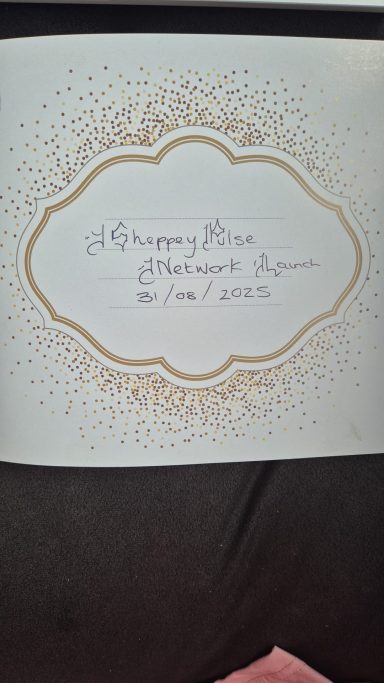 Sheppey Pulse
Network Launch
31/08/2025